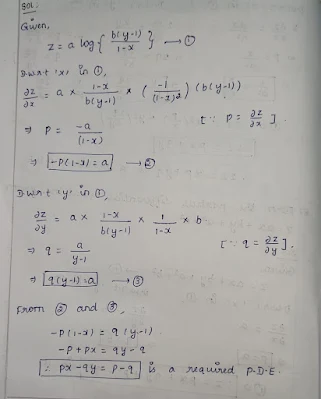 SOL:
Given,
z = a log { b(y-1) / 1-x } → ①
D w.r.t 'x' in ①,
∂z/∂x = a × 1-x / b(y-1) × ( -1 / (1-x)² ) (b(y-1))
⇒ P = -a / (1-x) [∵ P = ∂z/∂x].
⇒ -P(1-x) = a → ②
D w.r.t 'y' in ①,
∂z/∂y = a × 1-x / b(y-1) × 1 / 1-x × b
⇒ q = a / y-1 [∵ q = ∂z/∂y].
⇒ q(y-1) = a → ③
From ② and ③,
-P(1-x) = q(y-1)
-P + Px = qy - q
∴ Px - qy = P - q is a required P.D.E.